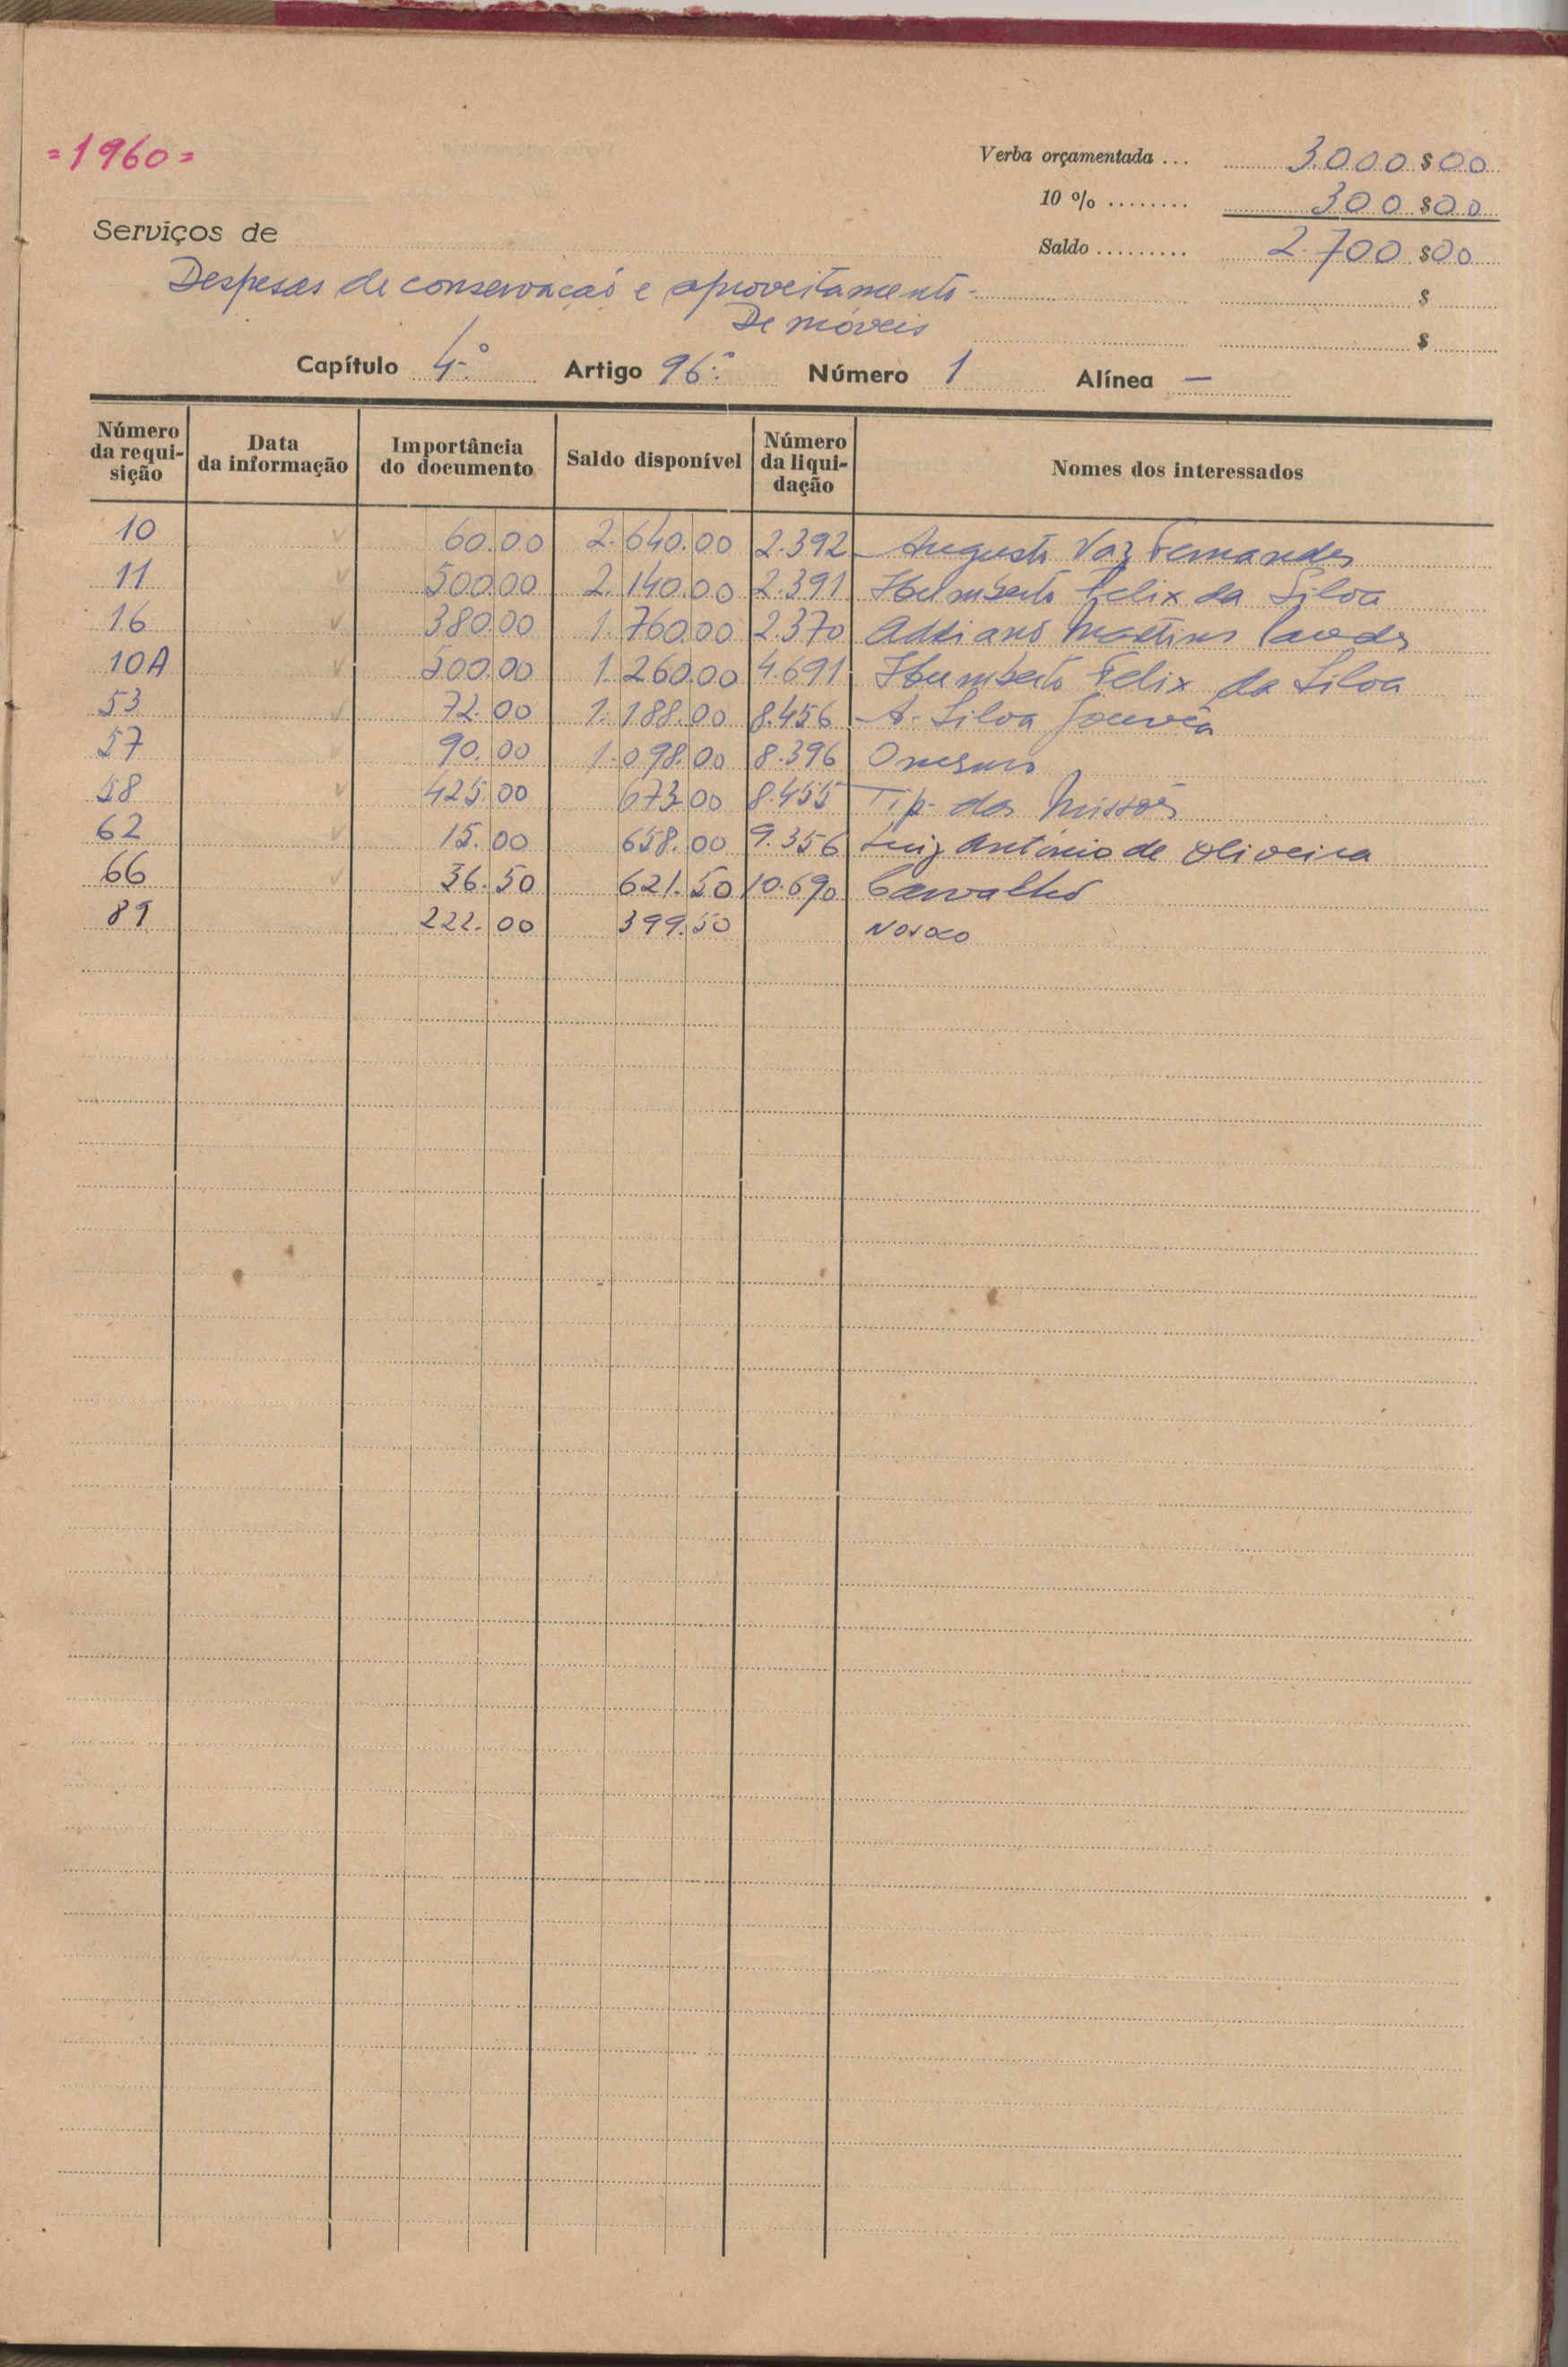 =1960=
Verba orçamentada ... 3.000$00
10 % ........ 300$00
Serviços de
Saldo ......... 2.700$00
Despesas de conservação e aproveitamento - $
De móveis $
Capítulo 4.º Artigo 96.º Número 1 Alínea —
Número da requi-sição Data da informação Importância do documento Saldo disponível Número da liqui-dação Nomes dos interessados
10 ✓ 60.00 2.640.00 2.392 Augusto Vaz Fernandes
11 ✓ 500.00 2.140.00 2.391 Humberto Felix da Silva
16 ✓ 380.00 1.760.00 2.370 Adriano Martins
10A ✓ 500.00 1.260.00 4.691 Humberto Felix da Silva
53 ✓ 72.00 1.188.00 8.456 A. Silva Gouvêa
57 ✓ 90.00 1.098.00 8.396
58 ✓ 425.00 673.00 8.455 Tip. das Missões
62 ✓ 15.00 658.00 9.356 Luiz António de Oliveira
66 ✓ 36.50 621.50 10.690 Carvalho
89 222.00 399.50 Nosoco